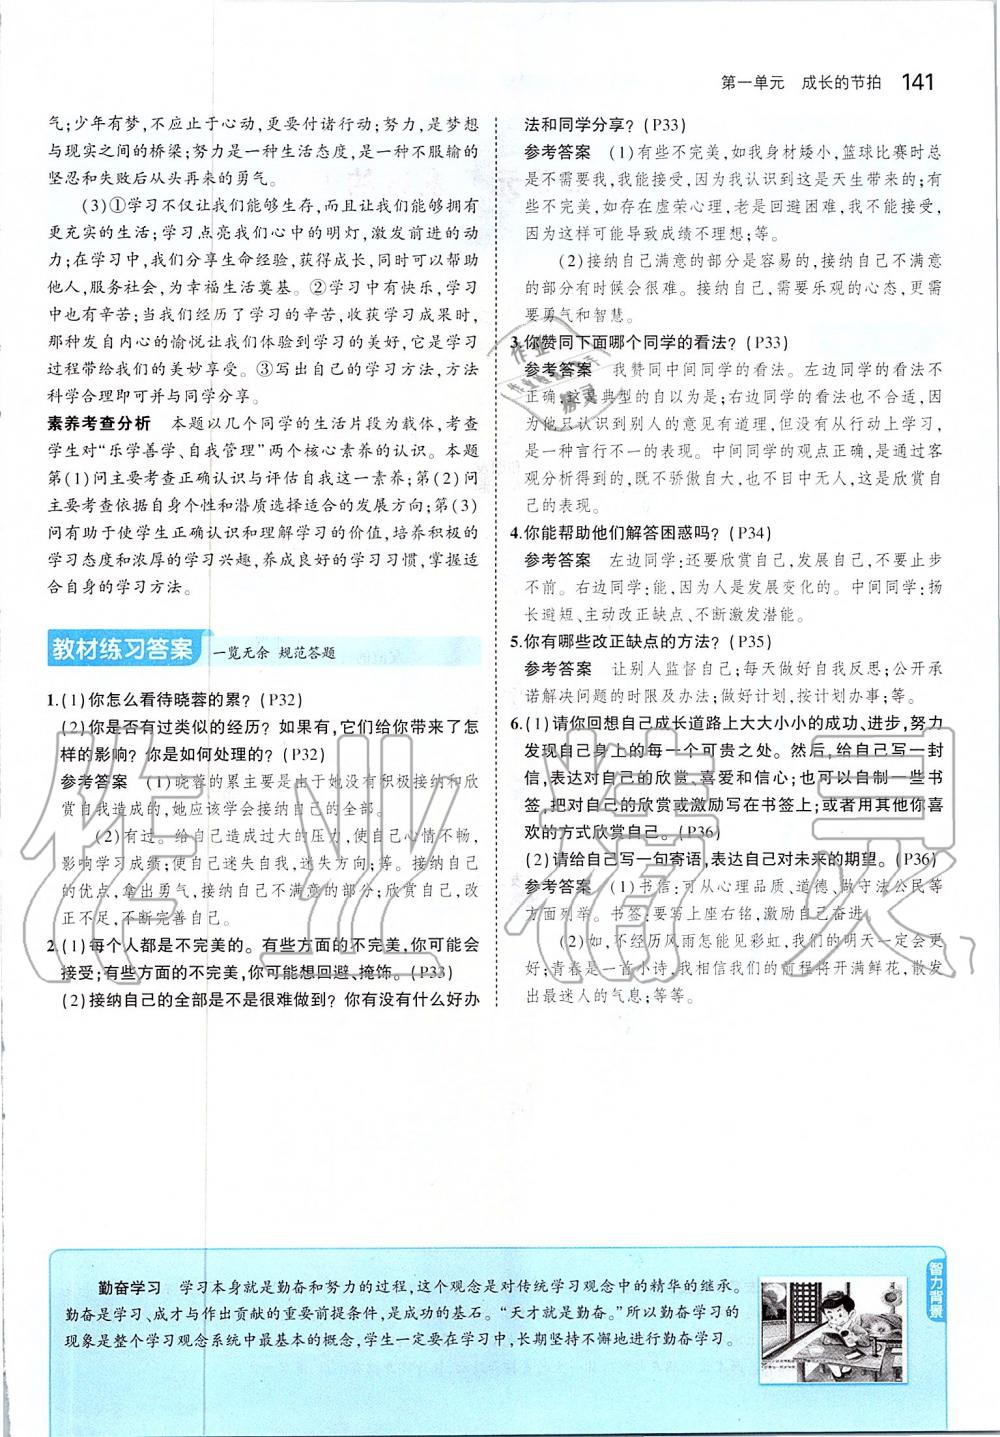 第一单元　成长的节拍　141
气;少年有梦,不应止于心动,更要付诸行动;努力,是梦想
与现实之间的桥梁;努力是一种生活态度,是一种不服输的
坚忍和失败后从头再来的勇气。
(3)①学习不仅让我们能够生存,而且让我们能够拥有
更充实的生活;学习点亮我们心中的明灯,激发前进的动
力;在学习中,我们分享生命经验,获得成长,同时可以帮助
他人,服务社会,为幸福生活奠基。②学习中有快乐,学习
中也有辛苦;当我们经历了学习的辛苦,收获学习成果时,
那种发自内心的愉悦让我们体验到学习的美好,它是学习
过程带给我们的美妙享受。③写出自己的学习方法,方法
科学合理即可并与同学分享。
素养考查分析　本题以几个同学的生活片段为载体,考查
学生对“乐学善学、自我管理”两个核心素养的认识。本题
第(1)问主要考查正确认识与评估自我这一素养;第(2)问
主要考查依据自身个性和潜质选择适合的发展方向;第(3)
问有助于使学生正确认识和理解学习的价值,培养积极的
学习态度和浓厚的学习兴趣,养成良好的学习习惯,掌握适
合自身的学习方法。
教材练习答案　一览无余 规范答题
1.(1)你怎么看待晓蓉的累?(P32)
(2)你是否有过类似的经历? 如果有,它们给你带来了怎
样的影响? 你是如何处理的?(P32)
参考答案　(1)晓蓉的累主要是由于她没有积极接纳和欣
赏自我造成的,她应该学会接纳自己的全部。
(2)有过。给自己造成过大的压力,使自己心情不畅,
影响学习成绩;使自己迷失自我,迷失方向;等。接纳自己
的优点,拿出勇气,接纳自己不满意的部分;欣赏自己,改
正不足,不断完善自己。
2.(1)每个人都是不完美的。有些方面的不完美,你可能会
接受;有些方面的不完美,你可能想回避、掩饰。(P33)
(2)接纳自己的全部是不是很难做到? 你有没有什么好办
法和同学分享?(P33)
参考答案　(1)有些不完美,如我身材矮小,篮球比赛时总
是不需要我,我能接受,因为我认识到这是天生带来的;有
些不完美,如存在虚荣心理,老是回避困难,我不能接受,
因为这样可能导致成绩不理想;等。
(2)接纳自己满意的部分是容易的,接纳自己不满意
的部分有时候会很难。接纳自己,需要乐观的心态,更需
要勇气和智慧。
3.你赞同下面哪个同学的看法?(P33)
参考答案　我赞同中间同学的看法。左边同学的看法不
正确,这是典型的自以为是;右边同学的看法也不合适,因
为他只认识到别人的意见有道理,但没有从行动上学习,
是一种言行不一的表现。中间同学的观点正确,是通过客
观分析得到的,既不骄傲自大,也不目中无人,这是欣赏自
己的表现。
4.你能帮助他们解答困惑吗?(P34)
参考答案　左边同学:还要欣赏自己,发展自己,不要止步
不前。右边同学:能,因为人是发展变化的。中间同学:扬
长避短,主动改正缺点,不断激发潜能。
5.你有哪些改正缺点的方法?(P35)
参考答案　让别人监督自己;每天做好自我反思;公开承
诺解决问题的时限及办法;做好计划,按计划办事;等。
6.(1)请你回想自己成长道路上大大小小的成功、进步,努力
发现自己身上的每一个可贵之处。然后,给自己写一封
信,表达对自己的欣赏、喜爱和信心;也可以自制一些书
签,把对自己的欣赏或激励写在书签上;或者用其他你喜
欢的方式欣赏自己。(P36)
(2)请给自己写一句寄语,表达自己对未来的期望。(P36)
参考答案　(1)书信:可从心理品质、道德、做守法公民等
方面列举。书签:要写上座右铭,激励自己奋进。
(2)如,不经历风雨怎能见彩虹,我们的明天一定会更
好;青春是一首小诗,我相信我们的前程将开满鲜花,散发
出最迷人的气息;等等。
作业精灵
智力背景
勤奋学习　学习本身就是勤奋和努力的过程,这个观念是对传统学习观念中的精华的继承。
勤奋是学习、成才与作出贡献的重要前提条件,是成功的基石。“天才就是勤奋。”所以勤奋学习的
现象是整个学习观念系统中最基本的概念,学生一定要在学习中,长期坚持不懈地进行勤奋学习。